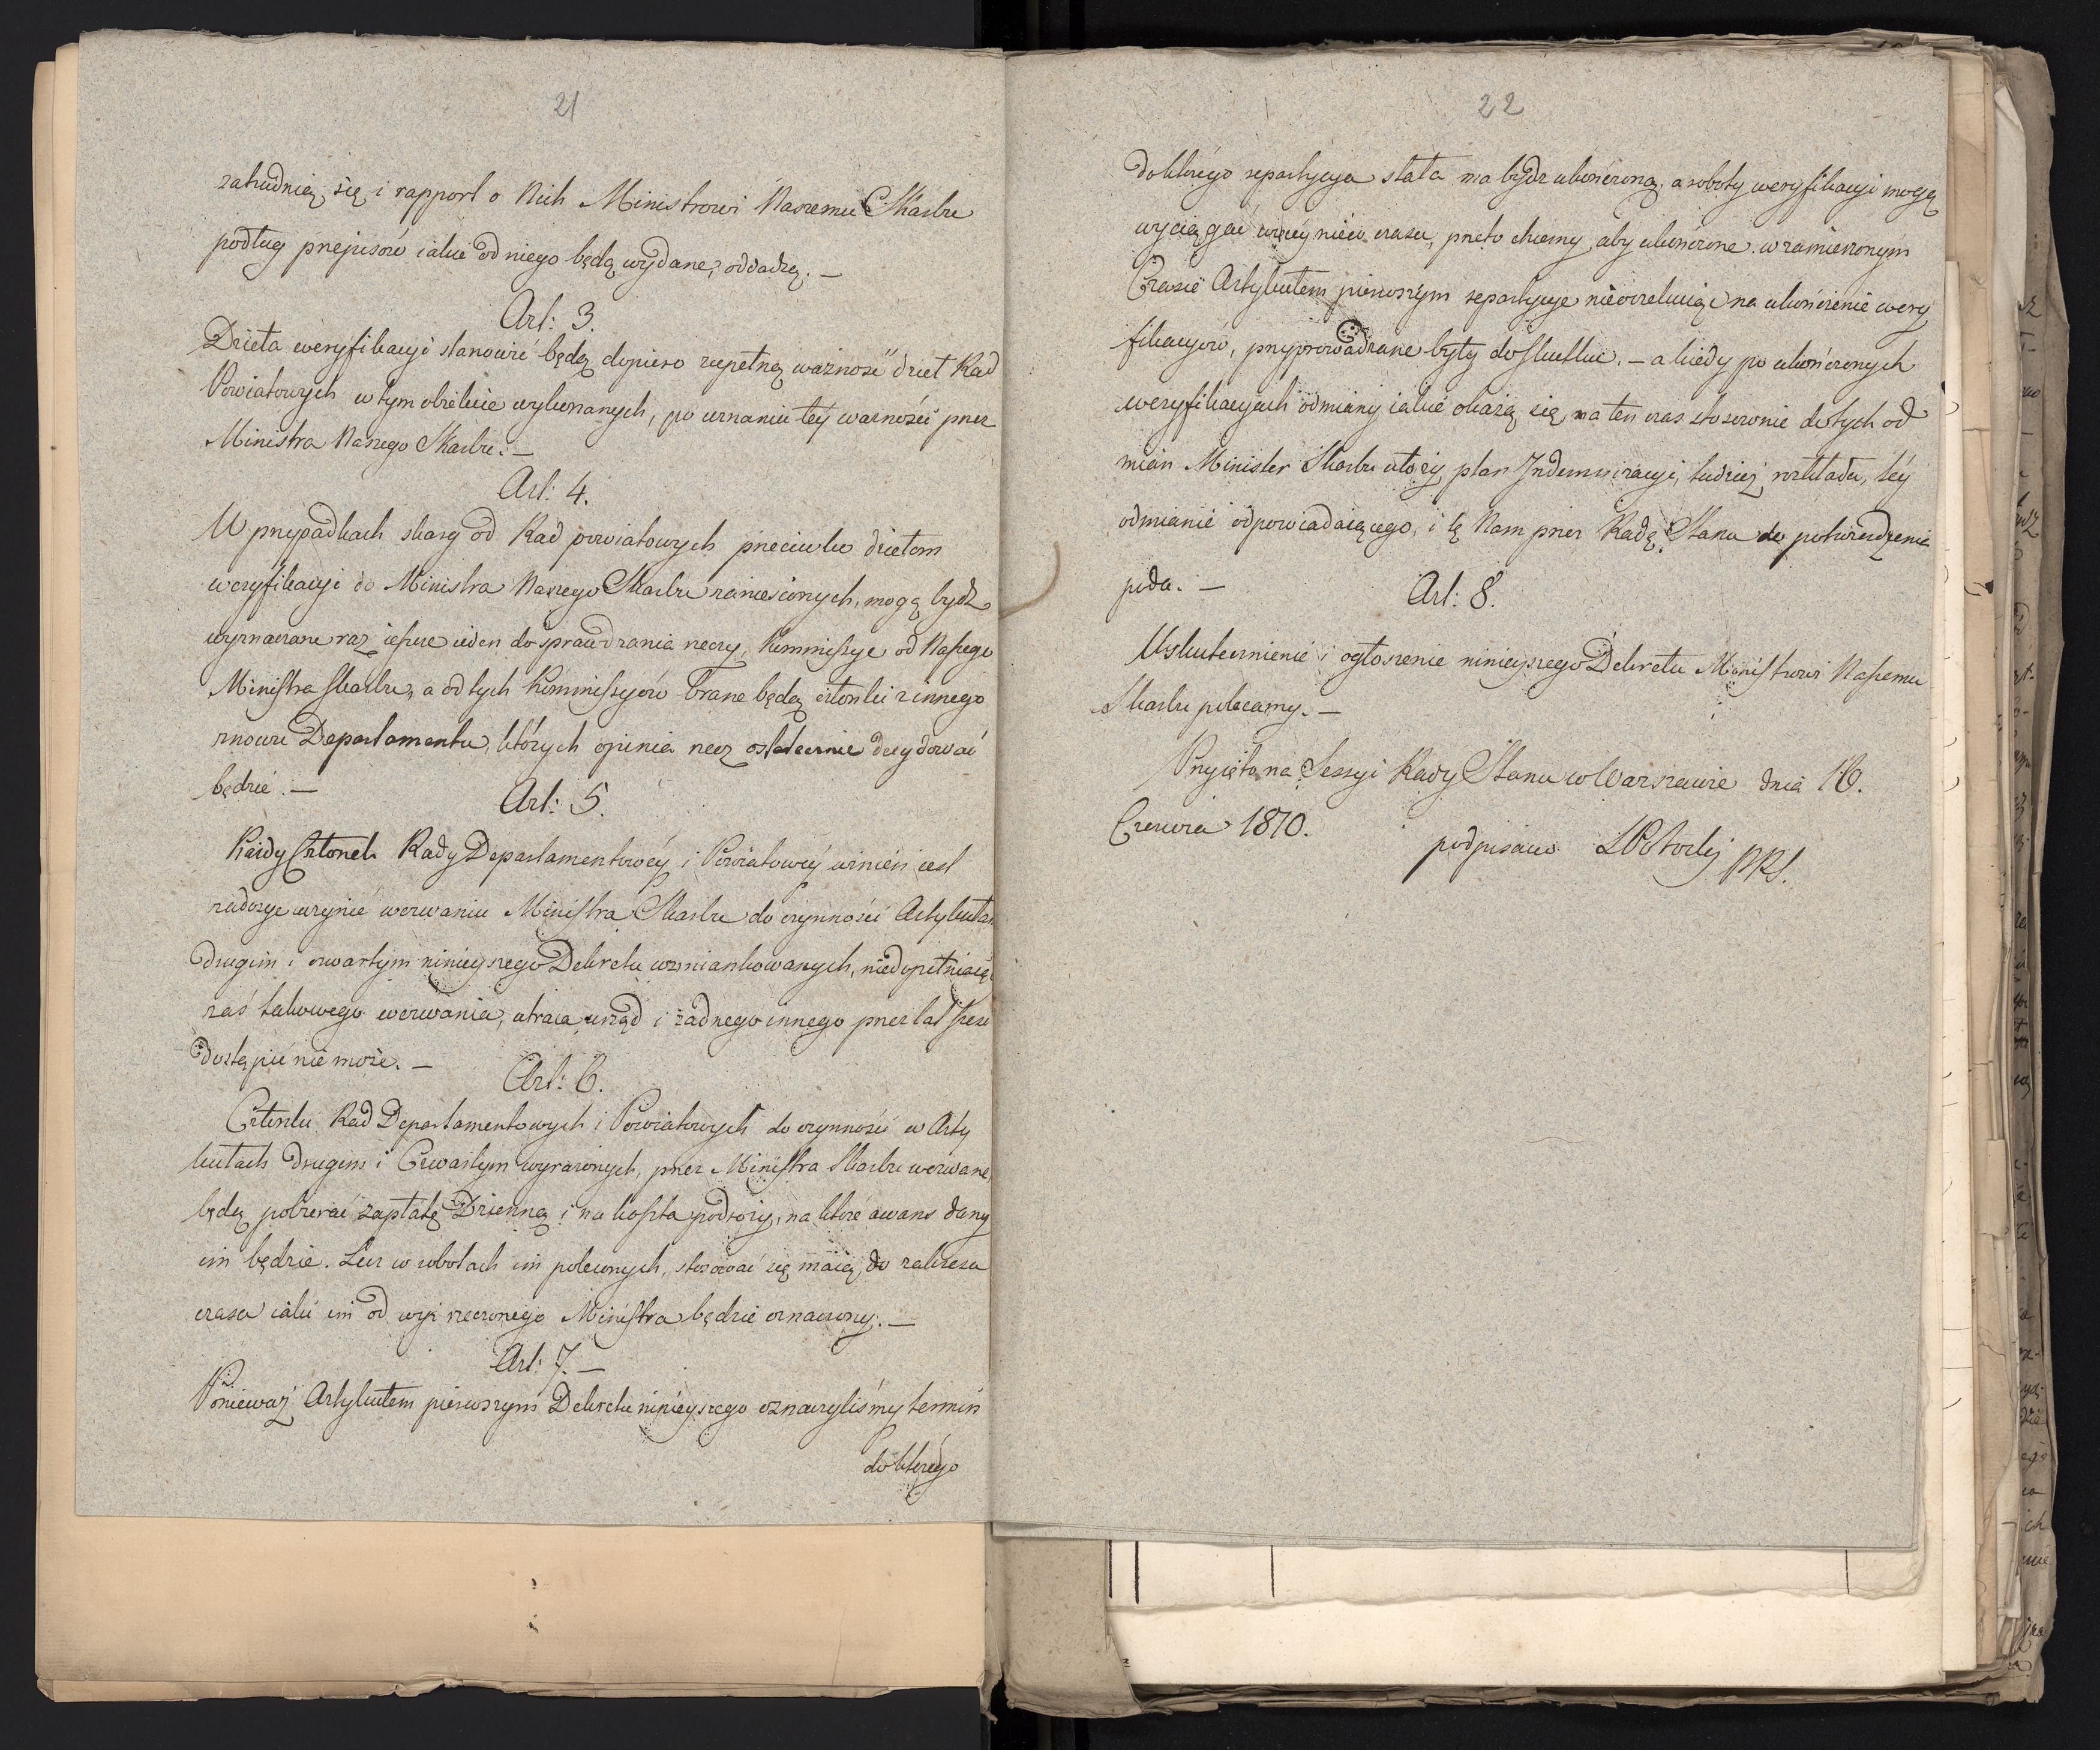 21
zatrudnią się i rapport o Nich Ministrowi Naszemu Skarbu
podług przepisów iakie od niego będą wydane, oddadzą. —
Art: 3.
Dzieła weryfikacyi stanowić będą dopiero zupełną ważność dzieł Rad
Powiatowych w tym obiekcie wykonanych, po uznaniu tey ważności przez
Ministra Naszego Skarbu. —
Art: 4.
W przypadkach skarg od Rad powiatowych przeciwko dziełom
weryfikacyi do Ministra Naszego Skarbu zaniesionych, mogą bydź
wyznaczane raz ieszcze ieden do sprawdzania rzeczy, Kommissye od Naszego
Ministra Skarbu, a od tych Kommissyów brane będą członki z innego
znowu Departamentu, których opinia rzecz ostatecznie decydować
będzie. —
Art: 5.
Każdy Członek Rady Departamentowéy i Powiatowéy winień iest
zadosyc uczynić wezwaniu Ministra Skarbu do czynności Artykułem
drugim i czwartym ninieyszego Dekretu wzmiankowanych, niedopełniaiąc
zaś takowego wezwania, utraca urząd i żadnego innego przez lat sześć
dostąpić nie może. —
Art: 6.
Członki Rad Departamentowych i Powiatowych do czynności w Arty
kułach drugim i Czwartym wyrażonych, przez Ministra Skarbu wezwane,
będą pobierać zapłatę Dzienną i na koszta podróży, na które awans dany
im będzie. Lecz w robotach im poleconych, stosować się maią do zakresu
czasu iaki im od wyż rzeczonego Ministra będzie oznaczony. —
Art: 7. —
Ponieważ Artykułem pierwszym Dekretu ninieyszego oznaczyliśmy termin
do którégo
22
do którégo repartycya stała ma bydź ukończoną, a roboty weryfikacyi mogą
wyciągać więcéy nieco czasu, przeto chcemy, aby ukończone w zamierzonym
Czasie Artykułem pierwszym repartycye nieoczekuiąc na ukończenie wery
fikacyów, przyprowadzane były do skutku. — a kiedy po ukończonych
weryfikacyach odmiany iakie okażą się, na ten czas stosownie do tych od
mian Minister Skarbu ułoży plan Indemnizacyi, tudzież rozkładu, téy
odmianie odpowiadaiącego, i tę Nam przez Radę Stanu do potwierdzenia
poda. —
Art: 8.
Uskutecznienie i ogłoszenie ninieyszego Dekretu Ministrowi Naszemu
Skarbu polecamy. —
Przyięto na Sessyi Rady Stanu w Warszawie dnia 16.
Czerwca 1810.
podpisano S Potocky PRS.